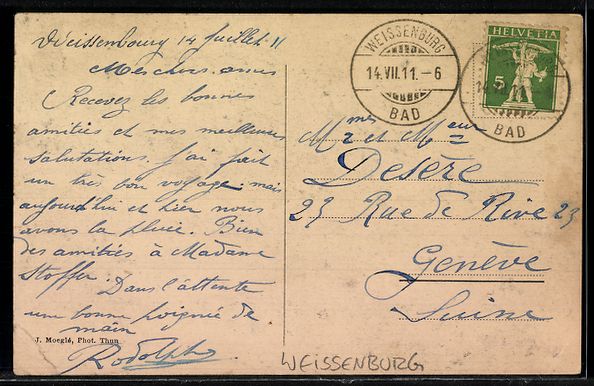 Weissenbourg 14 juillet 11
Mes chers amis
Recevez les bonnes
amitiés et mes meilleures
salutations. J'ai fait
un très bon voyage, mais
aujourd'hui et hier nous
avons la pluie. Bien
des amitiés à Madame
Stoffer. Dans l'attente
une bonne poignée de
main
Rodolphe
J. Moeglé, Phot. Thun
WEISSENBURG
14.VII.11.-6
BAD
HELVETIA
5
BAD
Mmes et Meur
Desère
23 Rue de Rive 23
Genève
Suisse
WEISSENBURG